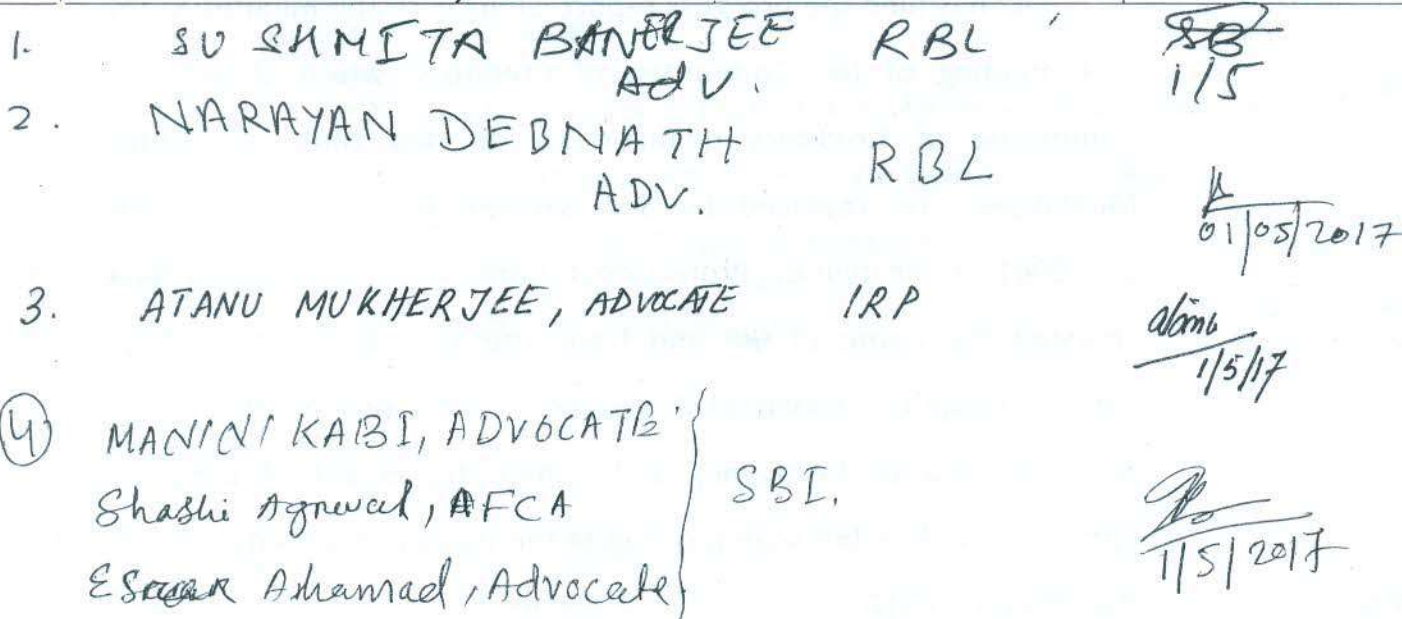 1. SUSHMITA BANERJEE RBL SB
Adv. 1/5
2. NARAYAN DEBNATH
ADV. RBL
01/05/2017
3. ATANU MUKHERJEE, ADVOCATE IRP
1/5/17
4 MANINI KABI, ADVOCATE
Shashi Agrewal, FCA SBI.
Ahamad, Advocate 1/5/2017